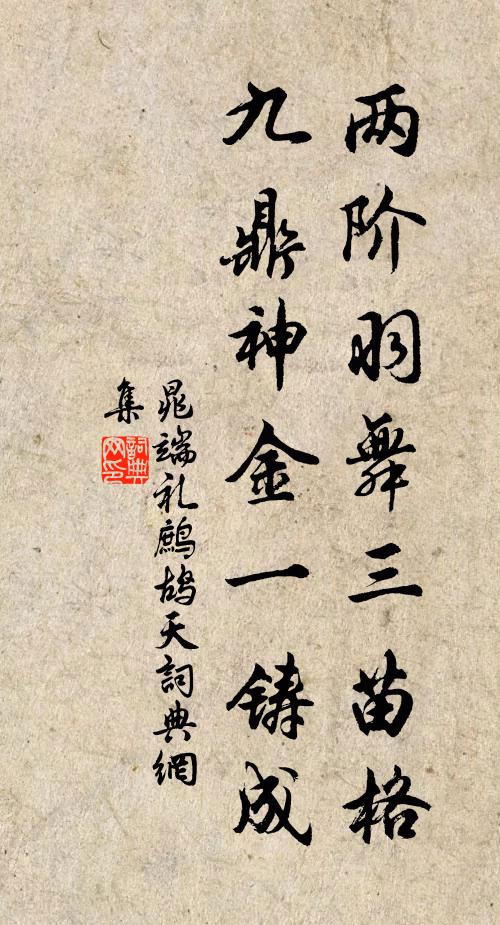 两阶羽舞三苗格
九鼎神金一铸成
晁端礼鹧鸪天詞典網
集
詞典
网印